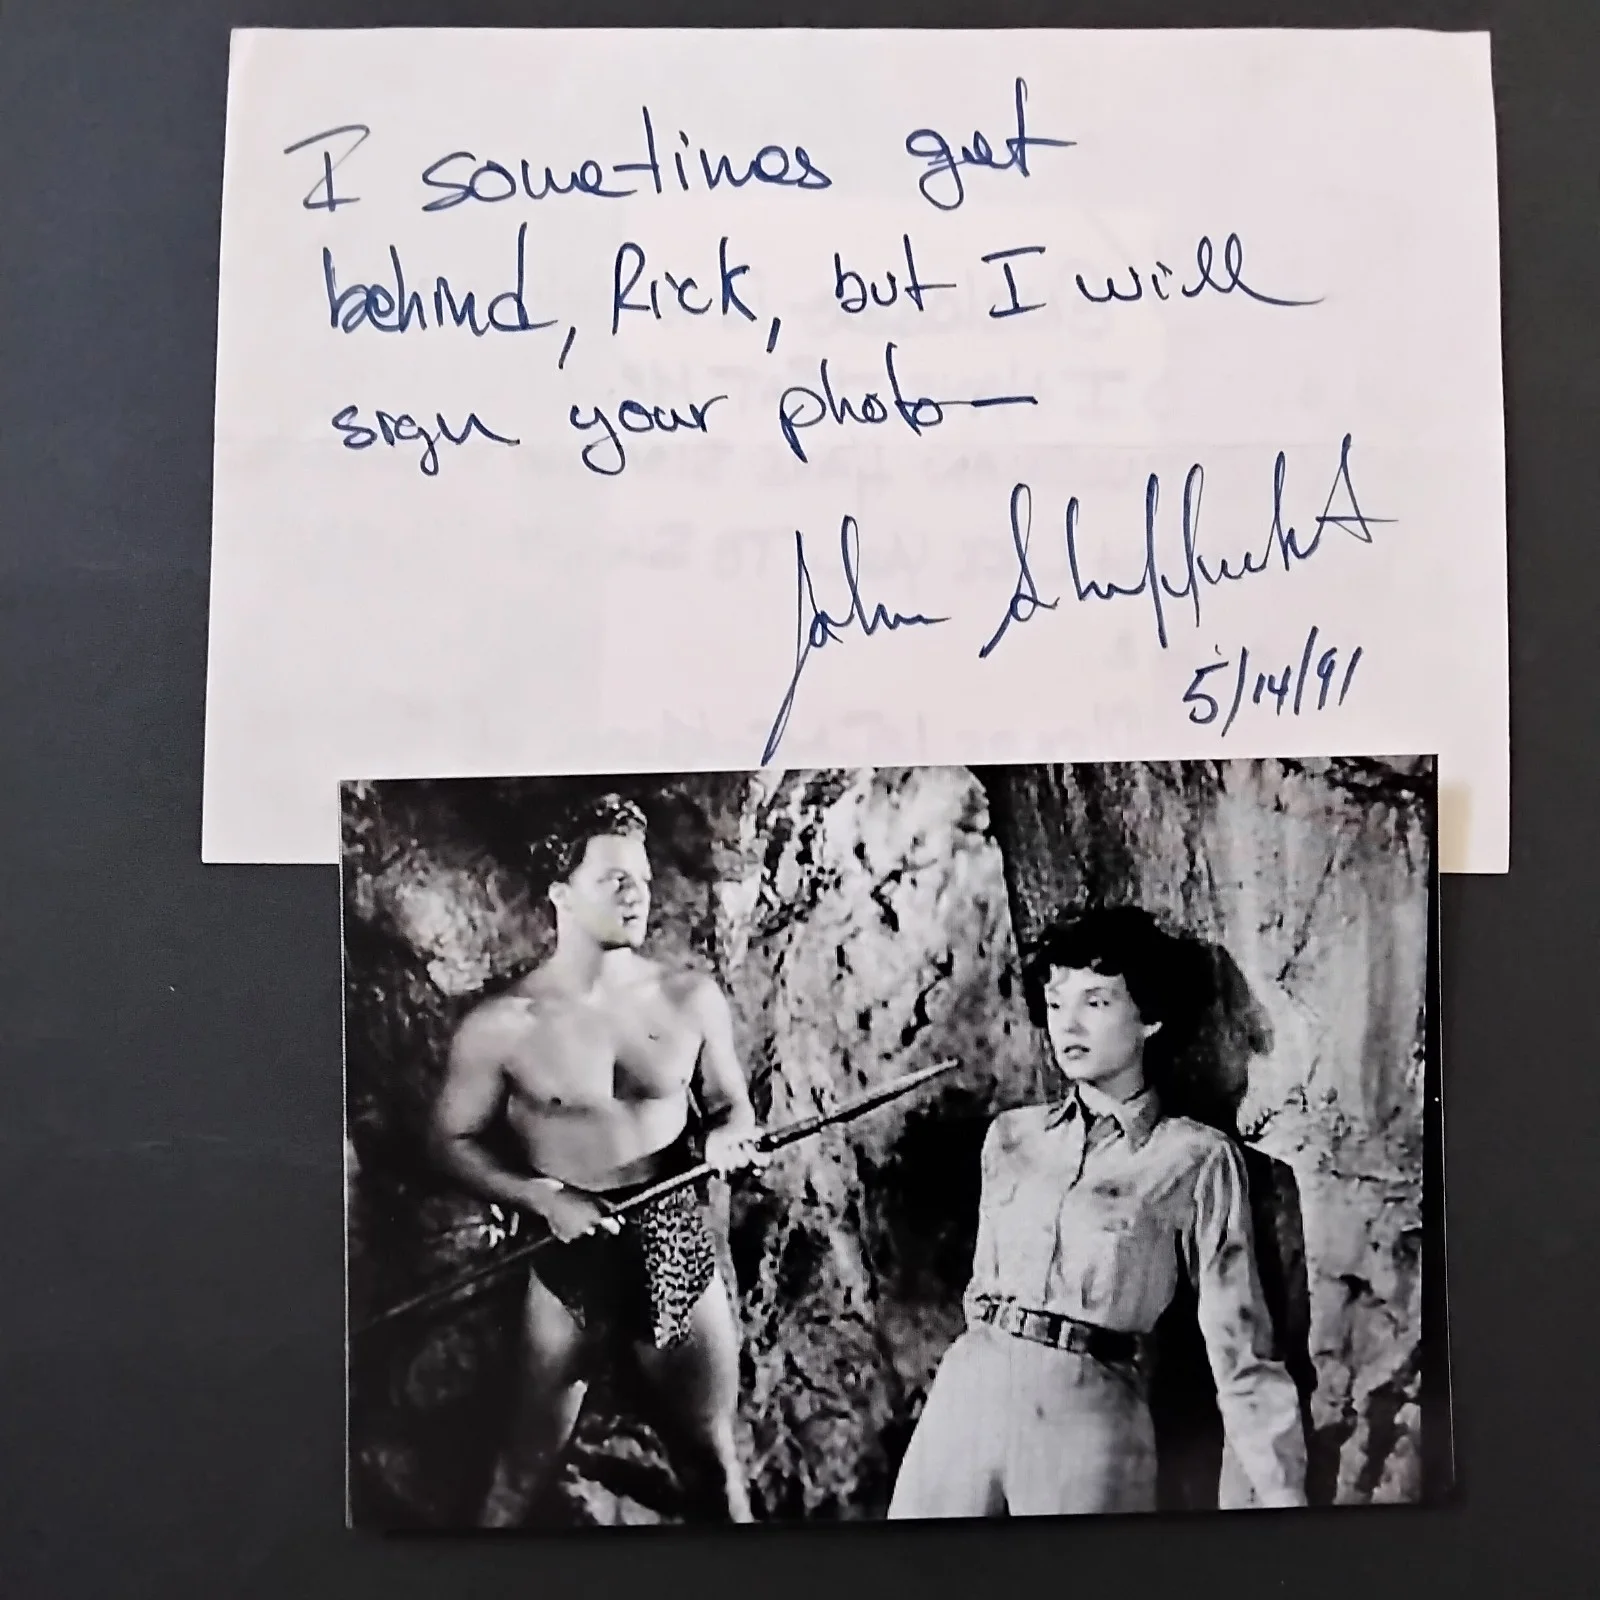 I sometimes get
behind, Rick, but I will
sign your photo—
John Sheffield
5/14/91